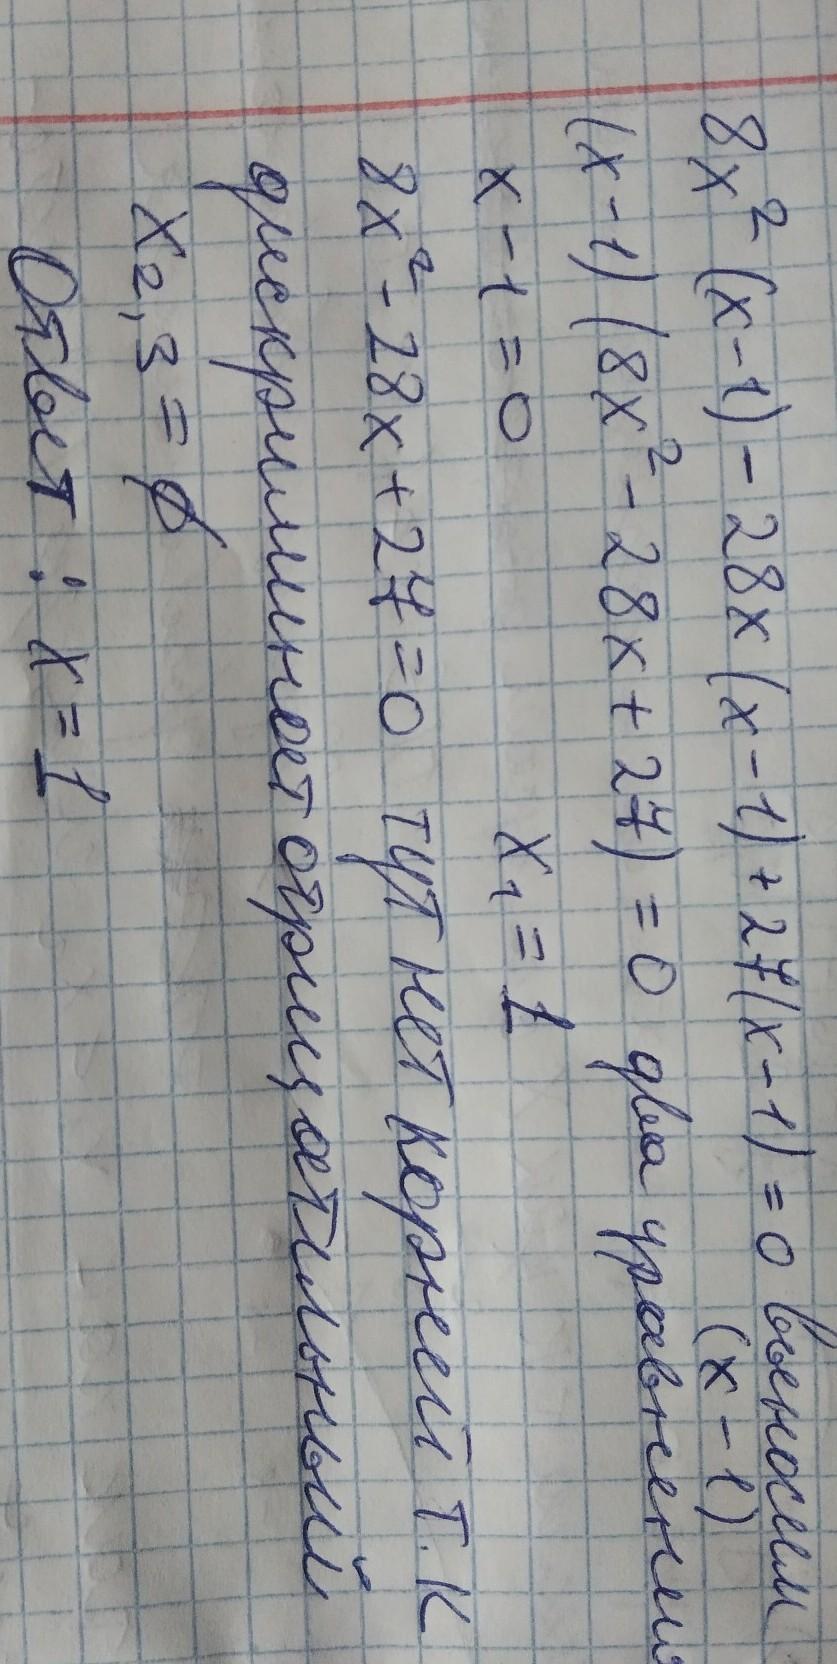 8x² (x-1) - 28x (x-1) + 27(x-1) = 0 выносим
(x-1)
(x-1) (8x² - 28x + 27) = 0 два уравнения
x - 1 = 0 x₁ = 1
8x² - 28x + 27 = 0 тут нет корней т.к
дискриминант отрицательный
x₂,₃ = ∅
Ответ : x = 1